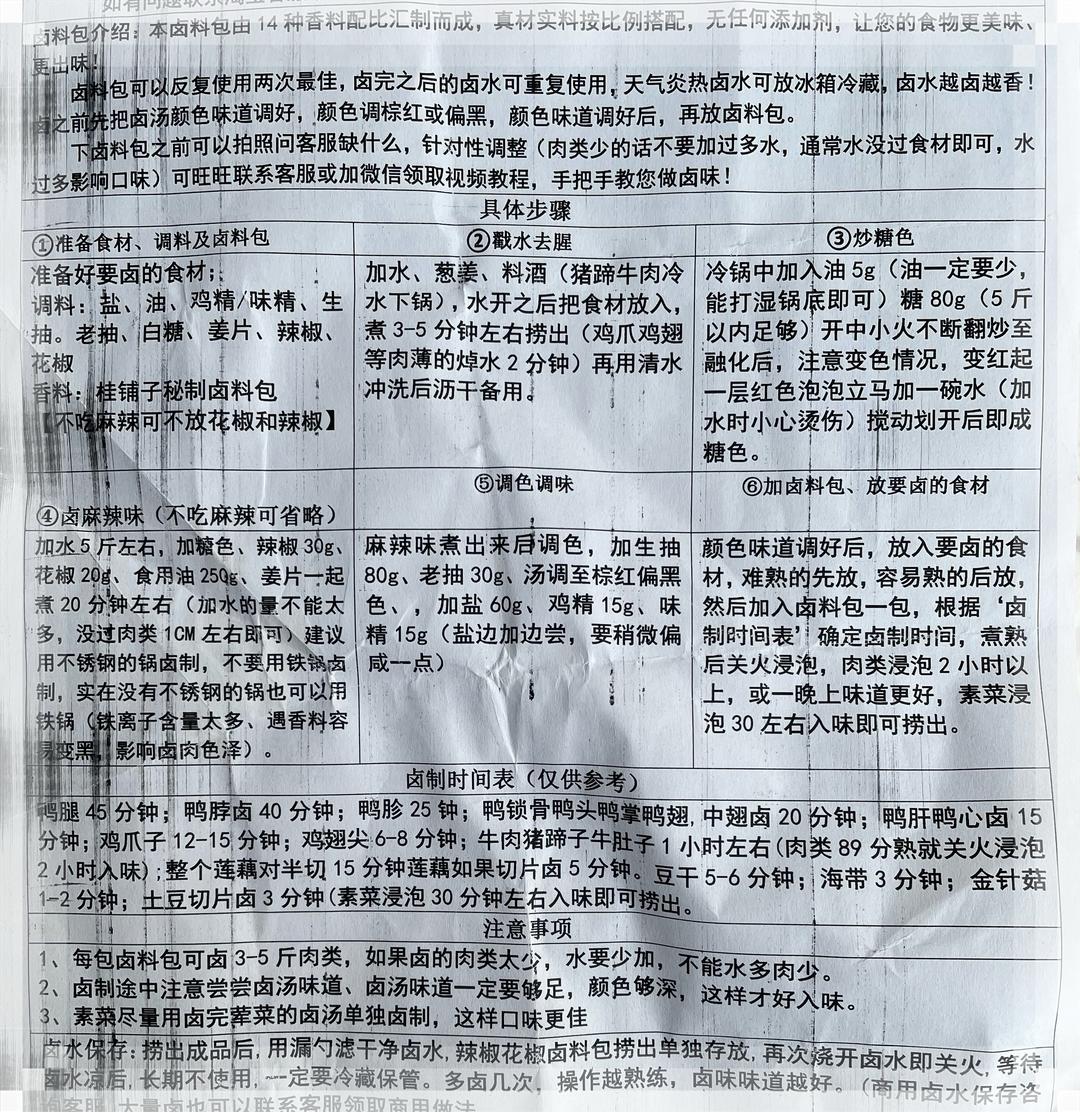 如有问题联系淘宝客
卤料包介绍：本卤料包由 14 种香料配比汇制而成，真材实料按比例搭配，无任何添加剂，让您的食物更美味、
更出味！
卤料包可以反复使用两次最佳，卤完之后的卤水可重复使用，天气炎热卤水可放冰箱冷藏，卤水越卤越香！
卤之前先把卤汤颜色味道调好，颜色调棕红或偏黑，颜色味道调好后，再放卤料包。
下卤料包之前可以拍照问客服缺什么，针对性调整（肉类少的话不要加过多水，通常水没过食材即可，水
过多影响口味）可旺旺联系客服或加微信领取视频教程，手把手教您做卤味！
具体步骤
①准备食材、调料及卤料包
准备好要卤的食材；
调料：盐、油、鸡精/味精、生
抽。老抽、白糖、姜片、辣椒、
花椒
香料：桂铺子秘制卤料包
【不吃麻辣可不放花椒和辣椒】
②戳水去腥
加水、葱姜、料酒（猪蹄牛肉冷
水下锅），水开之后把食材放入，
煮 3-5 分钟左右捞出（鸡爪鸡翅
等肉薄的焯水 2 分钟）再用清水
冲洗后沥干备用。
③炒糖色
冷锅中加入油 5g（油一定要少，
能打湿锅底即可）糖 80g（5 斤
以内足够）开中小火不断翻炒至
融化后，注意变色情况，变红起
一层红色泡泡立马加一碗水（加
水时小心烫伤）搅动划开后即成
糖色。
④卤麻辣味（不吃麻辣可省略）
加水 5 斤左右，加糖色、辣椒 30g、
花椒 20g、食用油 250g、姜片一起
煮 20 分钟左右（加水的量不能太
多，没过肉类 1CM 左右即可）建议
用不锈钢的锅卤制，不要用铁锅卤
制，实在没有不锈钢的锅也可以用
铁锅（铁离子含量太多、遇香料容
易变黑，影响卤肉色泽）。
⑤调色调味
麻辣味煮出来后调色，加生抽
80g、老抽 30g、汤调至棕红偏黑
色、，加盐 60g、鸡精 15g、味
精 15g（盐边加边尝，要稍微偏
咸一点）
⑥加卤料包、放要卤的食材
颜色味道调好后，放入要卤的食
材，难熟的先放，容易熟的后放，
然后加入卤料包一包，根据‘卤
制时间表’确定卤制时间，煮熟
后关火浸泡，肉类浸泡 2 小时以
上，或一晚上味道更好，素菜浸
泡 30 左右入味即可捞出。
卤制时间表（仅供参考）
鸭腿 45 分钟；鸭脖卤 40 分钟；鸭胗 25 钟；鸭锁骨鸭头鸭掌鸭翅,中翅卤 20 分钟；鸭肝鸭心卤 15
分钟；鸡爪子 12-15 分钟；鸡翅尖 6-8 分钟；牛肉猪蹄子牛肚子 1 小时左右(肉类 89 分熟就关火浸泡
2 小时入味)；整个莲藕对半切 15 分钟莲藕如果切片卤 5 分钟。豆干 5-6 分钟；海带 3 分钟；金针菇
1-2 分钟；土豆切片卤 3 分钟(素菜浸泡 30 分钟左右入味即可捞出。
注意事项
1、每包卤料包可卤 3-5 斤肉类，如果卤的肉类太少，水要少加，不能水多肉少。
2、卤制途中注意尝尝卤汤味道、卤汤味道一定要够足，颜色够深，这样才好入味。
3、素菜尽量用卤完荤菜的卤汤单独卤制，这样口味更佳
卤水保存：捞出成品后,用漏勺滤干净卤水,辣椒花椒卤料包捞出单独存放,再次烧开卤水即关火,等待
卤水凉后,长期不使用,一定要冷藏保管。多卤几次，操作越熟练，卤味味道越好。（商用卤水保存咨
询客服,大量卤也可以联系客服领取商用做法